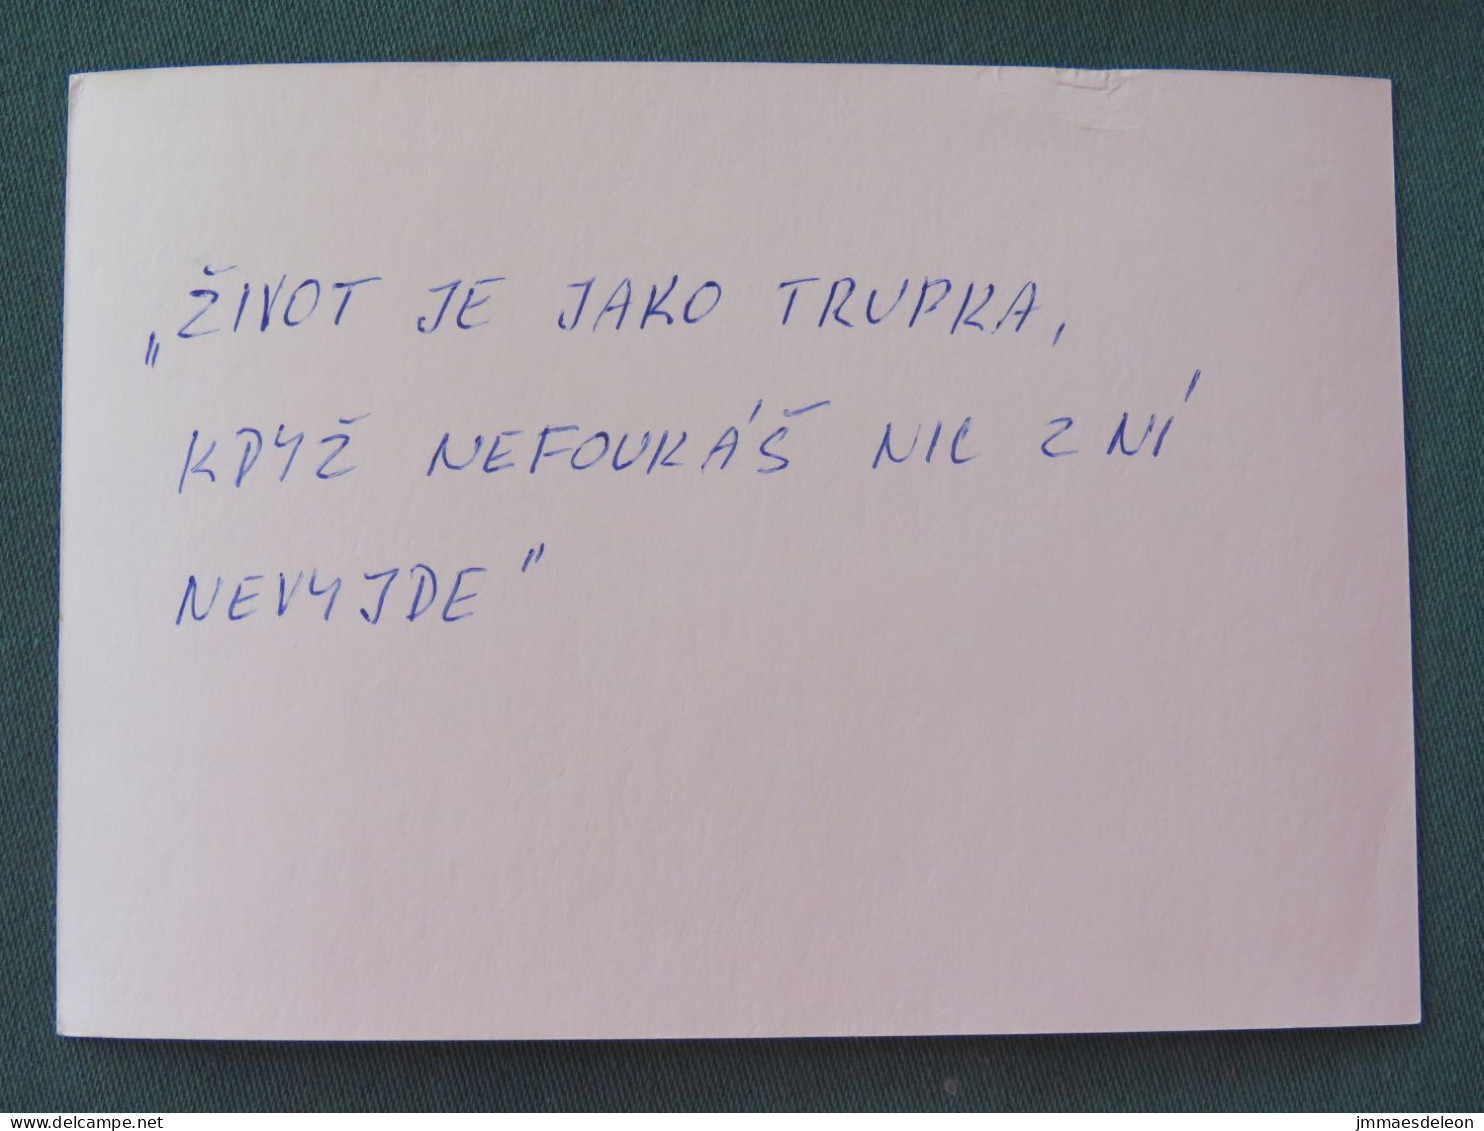 „ŽIVOT JE JAKO TRUPKA,
KDYŽ NEFOUKÁŠ NIC Z NÍ
NEVYJDE"
www.delcampe.net
jmmaesdeleon